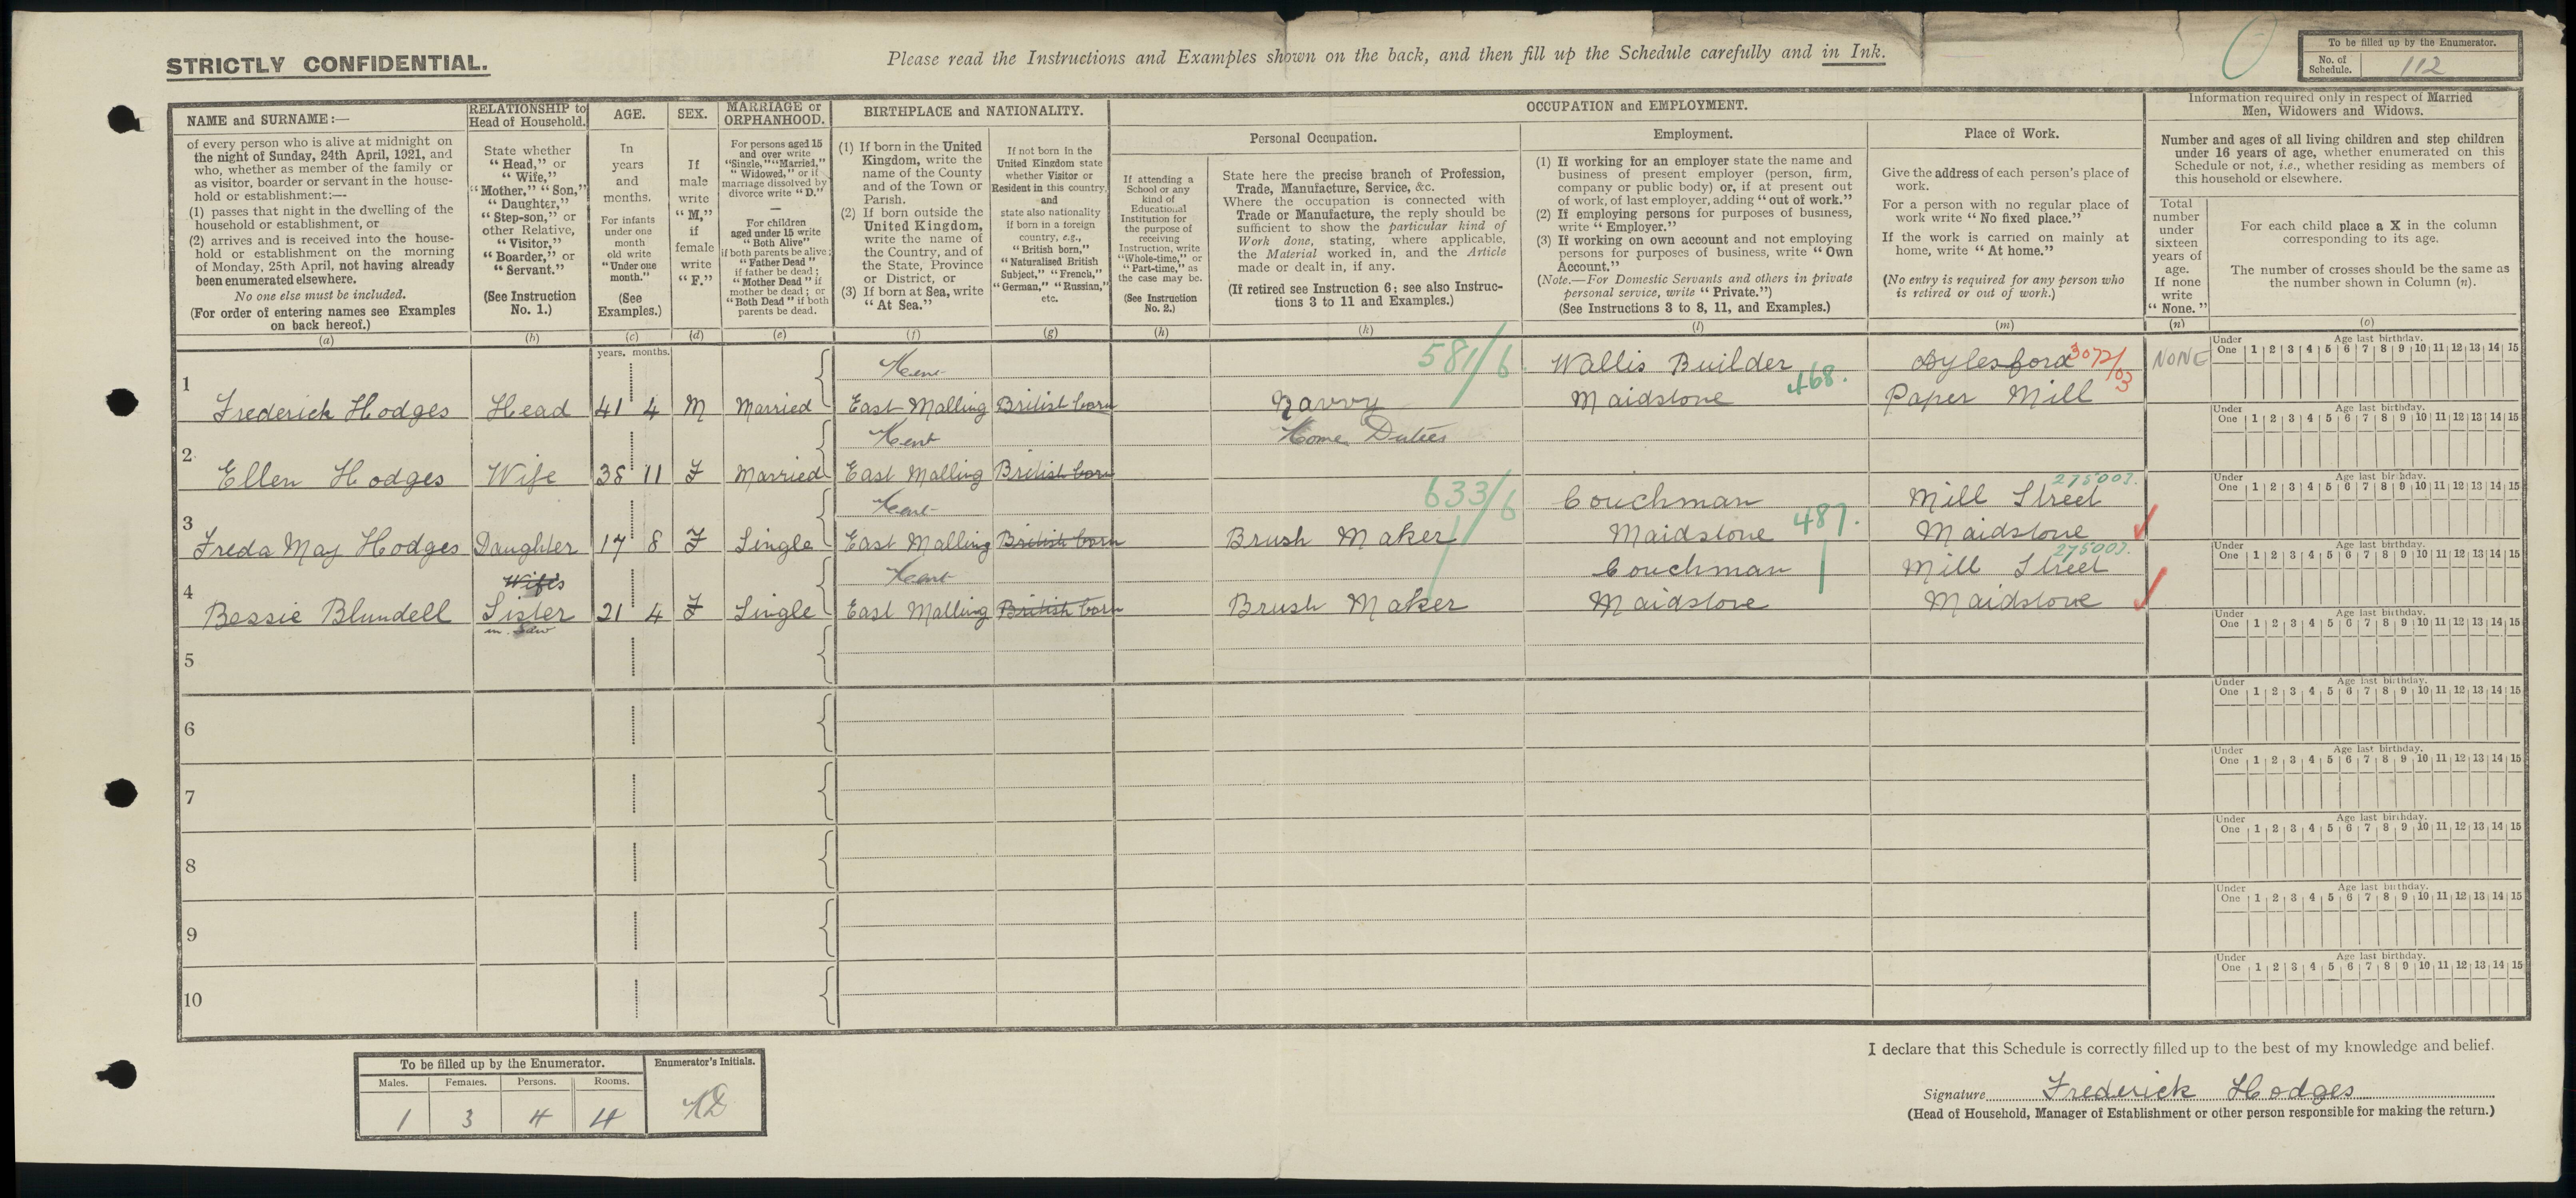 STRICTLY CONFIDENTIAL.
Please read the Instructions and Examples shown on the back, and then fill up the Schedule carefully and in Ink.
To be filled up by the Enumerator.
No. of Schedule. 112
NAME and SURNAME:—
of every person who is alive at midnight on
the night of Sunday, 24th April, 1921, and
who, whether as member of the family or
as visitor, boarder or servant in the house-
hold or establishment:—
(1) passes that night in the dwelling of the
household or establishment, or
(2) arrives and is received into the house-
hold or establishment on the morning
of Monday, 25th April, not having already
been enumerated elsewhere.
No one else must be included.
(For order of entering names see Examples
on back hereof.)
(a)
RELATIONSHIP to
Head of Household.
State whether
"Head," or
"Wife,"
"Mother," "Son,"
"Daughter,"
"Step-son," or
other Relative,
"Visitor,"
"Boarder," or
"Servant."
(See Instruction
No. 1.)
(b)
AGE.
In
years
and
months.
For infants
under one
month
old write
"Under one
month."
(See
Examples.)
(c)
SEX.
If
male
write
"M,"
if
female
write
"F."
(d)
MARRIAGE or
ORPHANHOOD.
For persons aged 15
and over write
"Single," "Married,"
"Widowed," or if
marriage dissolved by
divorce write "D."
—
For children
aged under 15 write
"Both Alive"
if both parents be alive;
"Father Dead"
if father be dead;
"Mother Dead" if
mother be dead; or
"Both Dead" if both
parents be dead.
(e)
BIRTHPLACE and NATIONALITY.
(1) If born in the United
Kingdom, write the
name of the County
and of the Town or
Parish.
(2) If born outside the
United Kingdom,
write the name of
the Country, and of
the State, Province
or District, or
(3) If born at Sea, write
"At Sea."
(f)
If not born in the
United Kingdom state
whether Visitor or
Resident in this country,
and
state also nationality
if born in a foreign
country, e.g.,
"British born,"
"Naturalised British
Subject," "French,"
"German," "Russian,"
etc.
(g)
OCCUPATION and EMPLOYMENT.
If attending a
School or any
kind of
Educational
Institution for
the purpose of
receiving
Instruction, write
"Whole-time," or
"Part-time," as
the case may be.
(See Instruction
No. 2.)
(h)
Personal Occupation.
State here the precise branch of Profession,
Trade, Manufacture, Service, &c.
Where the occupation is connected with
Trade or Manufacture, the reply should be
sufficient to show the particular kind of
Work done, stating, where applicable,
the Material worked in, and the Article
made or dealt in, if any.
(If retired see Instruction 6; see also Instruc-
tions 3 to 11 and Examples.)
(k)
Employment.
(1) If working for an employer state the name and
business of present employer (person, firm,
company or public body) or, if at present out
of work, of last employer, adding "out of work."
(2) If employing persons for purposes of business,
write "Employer."
(3) If working on own account and not employing
persons for purposes of business, write "Own
Account."
(Note.—For Domestic Servants and others in private
personal service, write "Private.")
(See Instructions 3 to 8, 11, and Examples.)
(l)
Place of Work.
Give the address of each person's place of
work.
For a person with no regular place of
work write "No fixed place."
If the work is carried on mainly at
home, write "At home."
(No entry is required for any person who
is retired or out of work.)
(m)
Information required only in respect of Married
Men, Widowers and Widows.
Number and ages of all living children and step children
under 16 years of age, whether enumerated on this
Schedule or not, i.e., whether residing as members of
this household or elsewhere.
Total
number
under
sixteen
years of
age.
If none
write
"None."
(n)
For each child place a X in the column
corresponding to its age.
The number of crosses should be the same as
the number shown in Column (n).
(o)
years. months.
Kent 581/6 Wallis Builder 468. Aylesford 3072/03 NONE
1 Frederick Hodges Head 41 4 M Married East Malling British born Navvy Maidstone Paper Mill
Under One 1 2 3 4 5 6 7 8 9 10 11 12 13 14 15 Age last birthday.
Kent Home Duties
2 Ellen Hodges Wife 38 11 F Married East Malling British born
Under One 1 2 3 4 5 6 7 8 9 10 11 12 13 14 15 Age last birthday.
Kent 633/6 Couchman 487. Mill Street 275003.
3 Freda May Hodges Daughter 17 8 F Single East Malling British born Brush Maker Maidstone Maidstone
Under One 1 2 3 4 5 6 7 8 9 10 11 12 13 14 15 Age last birthday.
Wife's Kent Couchman Mill Street 275003.
4 Bessie Blundell Sister 21 4 F Single East Malling British born Brush Maker Maidstone Maidstone
in Law
Under One 1 2 3 4 5 6 7 8 9 10 11 12 13 14 15 Age last birthday.
5
Under One 1 2 3 4 5 6 7 8 9 10 11 12 13 14 15 Age last birthday.
6
Under One 1 2 3 4 5 6 7 8 9 10 11 12 13 14 15 Age last birthday.
7
Under One 1 2 3 4 5 6 7 8 9 10 11 12 13 14 15 Age last birthday.
8
Under One 1 2 3 4 5 6 7 8 9 10 11 12 13 14 15 Age last birthday.
9
Under One 1 2 3 4 5 6 7 8 9 10 11 12 13 14 15 Age last birthday.
10
Under One 1 2 3 4 5 6 7 8 9 10 11 12 13 14 15 Age last birthday.
To be filled up by the Enumerator. Enumerator's Initials.
Males. Females. Persons. Rooms.
1 3 4 4
I declare that this Schedule is correctly filled up to the best of my knowledge and belief.
Signature Frederick Hodges
(Head of Household, Manager of Establishment or other person responsible for making the return.)